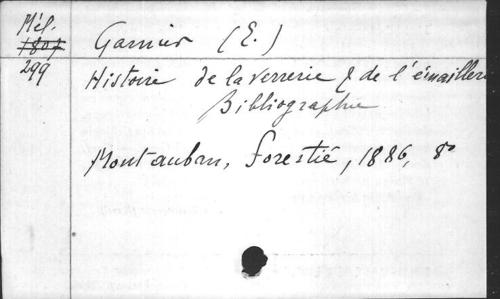 Mél.
1807
299
Garnier (E.)
Histoire de la verrerie & de l'émaillerie
Bibliographie
Montauban, Forestié, 1886, 8º